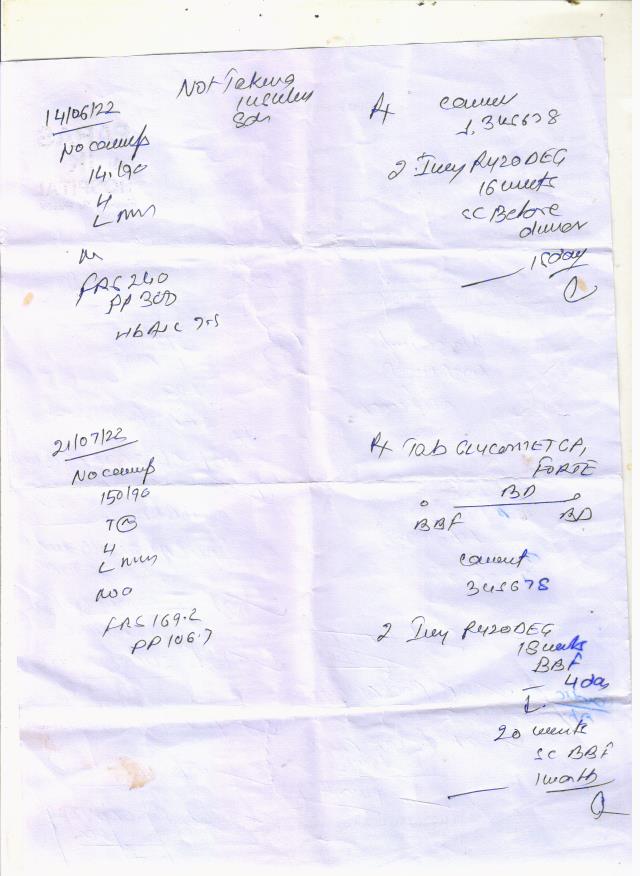 Not Taking
Insulin
14/06/22
No comp
141/90
FBS 240
PP 300
HbA1c 9.5
Rx
1,345678
2. Inj RYZODEG
16 units
SC Before
dinner
15 day
21/07/22
No comp
150/90
FBS 169.2
PP 106.7
Rx Tab GLYCOMET GP1
FORTE
BD
BBF BD
345678
2 Inj RYZODEG
18 units
BBF
4 day
20 units
SC BBF
1 month